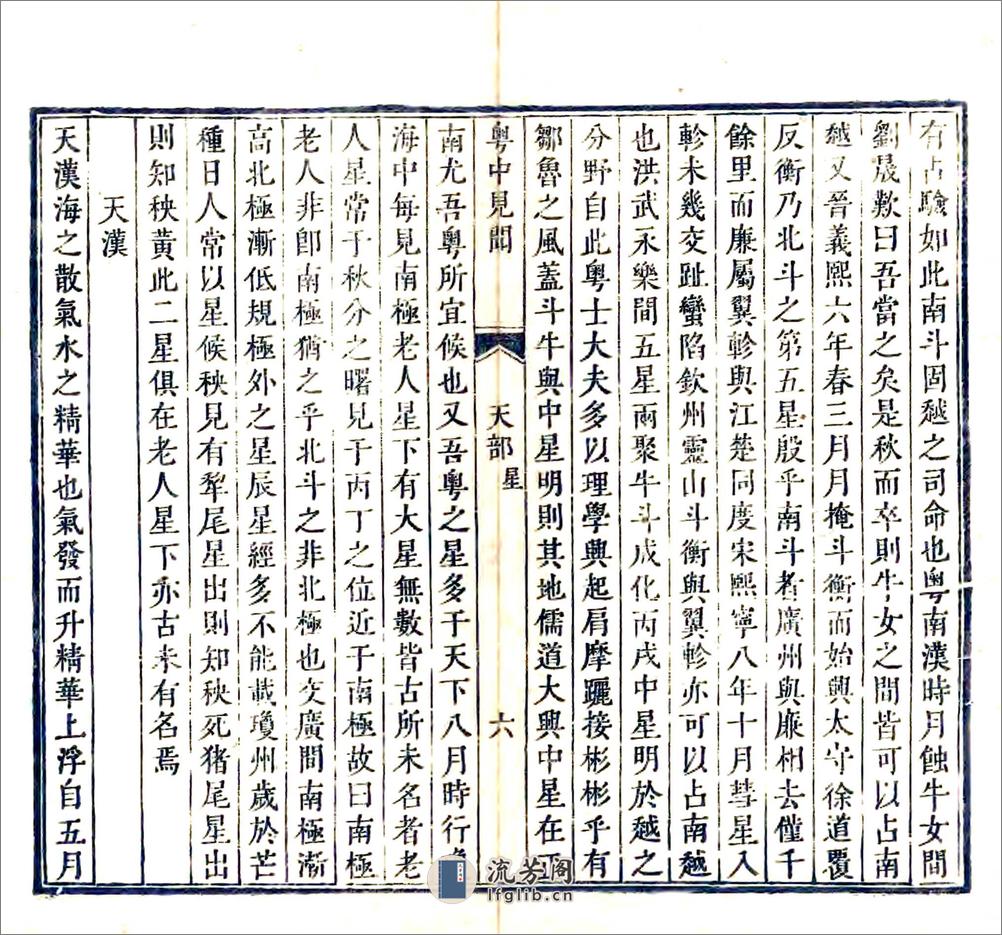 有占驗如此南斗固越之司命也粤南漢時月蝕牛女間
劉晟歎曰吾當之矣是秋而卒則牛女之間皆可以占南
越又晉義熙六年春三月月掩斗衡而始興太守徐道覆
反衡乃北斗之第五星殷乎南斗者廣州與廉相去僅千
餘里而廉屬翼軫與江楚同度宋熙寧八年十月彗星入
軫未幾交趾蠻陷欽州靈山斗衡與翼軫亦可以占南越
也洪武永樂間五星兩聚牛斗成化丙戌中星明於越之
分野自此粤士大夫多以理學興起肩摩躧接彬彬乎有
鄒魯之風蓋斗牛與中星明則其地儒道大興中星在
粤中見聞 天部 星 六
南尤吾粤所宜候也又吾粤之星多于天下八月時行
海中每見南極老人星下有大星無數皆古所未名者老
人星常于秋分之曙見于丙丁之位近于南極故曰南極
老人非卽南極猶之乎北斗之非北極也交廣間南極漸
高北極漸低規極外之星辰星經多不能載瓊州歲於芒
種日人常以星候秧見有犂尾星出則知秧死猪尾星出
則知秧黃此二星俱在老人星下亦古未有名焉
天漢
天漢海之散氣水之精華也氣發而升精華上浮自五月
流芳阁
lfglib.cn